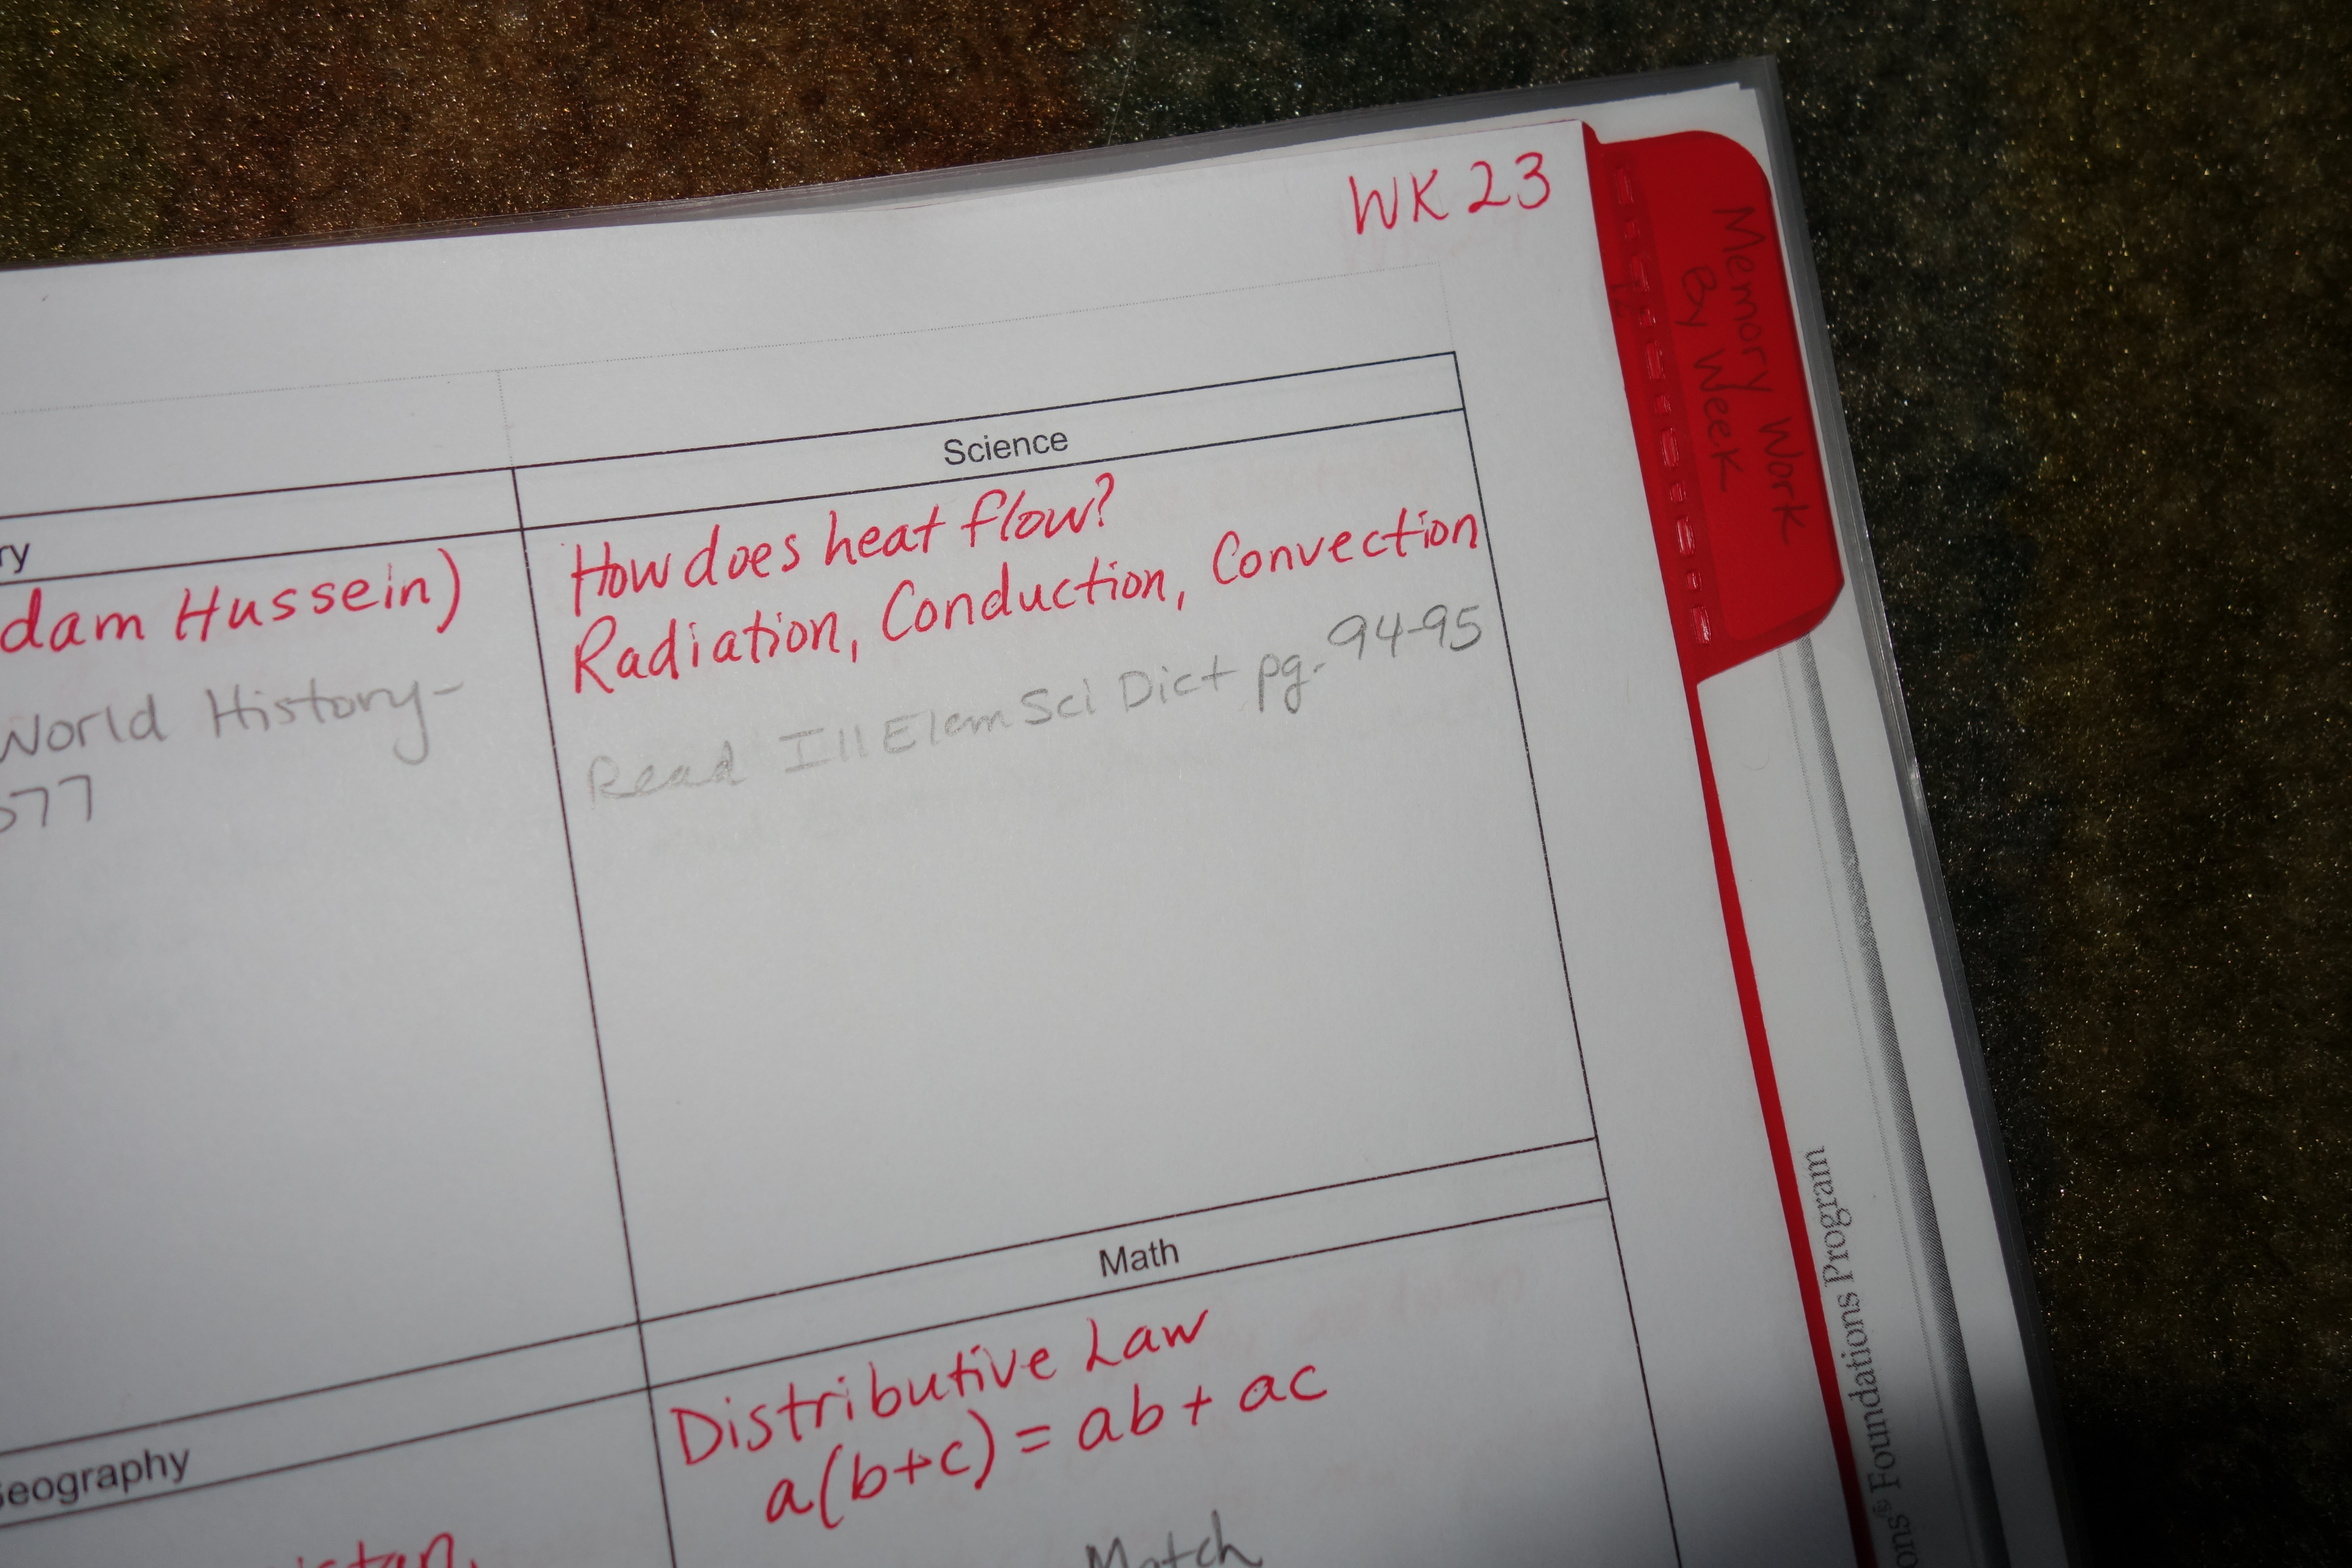 WK 23
Memory Work
By Week
Science
How does heat flow?
Radiation, Conduction, Convection
Read Ill Elem Sci Dict pg. 94-95
dam Hussein)
World History-
77
Math
Distributive Law
a(b+c) = ab + ac
Match
eography
istan,
Foundations Program